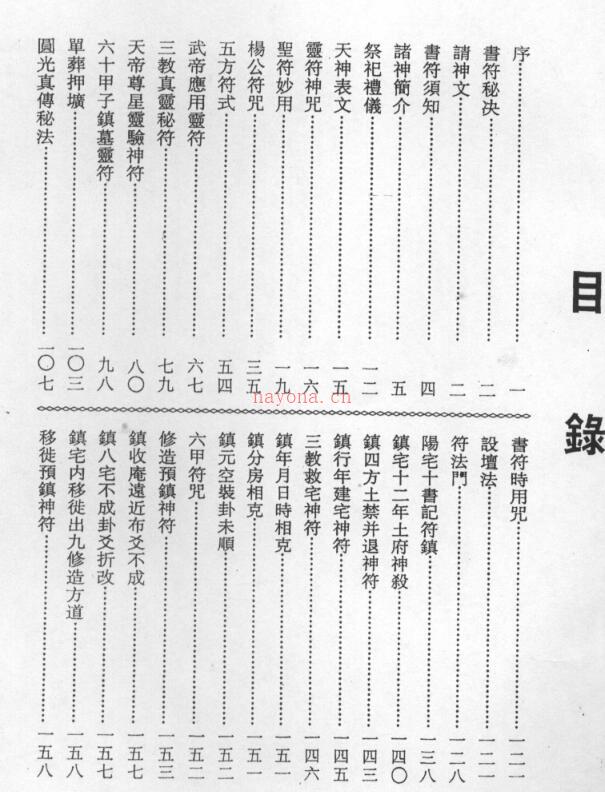 目錄
序一
書符秘決二
請神文二
書符須知四
諸神簡介五
祭祀禮儀一二
天神表文一五
靈符神咒一六
聖符妙用一九
楊公符咒三五
五方符式五四
武帝應用靈符六七
三教真靈秘符七九
天帝尊星靈驗神符八〇
六十甲子鎮墓靈符九八
單葬押壙一〇三
圓光真傳秘法一〇七
書符時用咒一二一
設壇法一二一
符法門一二八
陽宅十書記符鎮一三八
鎮宅十二年土府神殺一四〇
鎮四方土禁并退神符一四三
鎮行年建宅神符一四五
三教救宅神符一四六
鎮年月日時相克一五一
鎮分房相克一五一
鎮元空裝卦未順一五二
六甲符咒一五二
修造預鎮神符一五三
鎮收庵遠近布爻不成一五七
鎮八宅不成卦爻折改一五七
鎮宅内移徙出九修造方道一五八
移徙預鎮神符一五八
nayona.cn